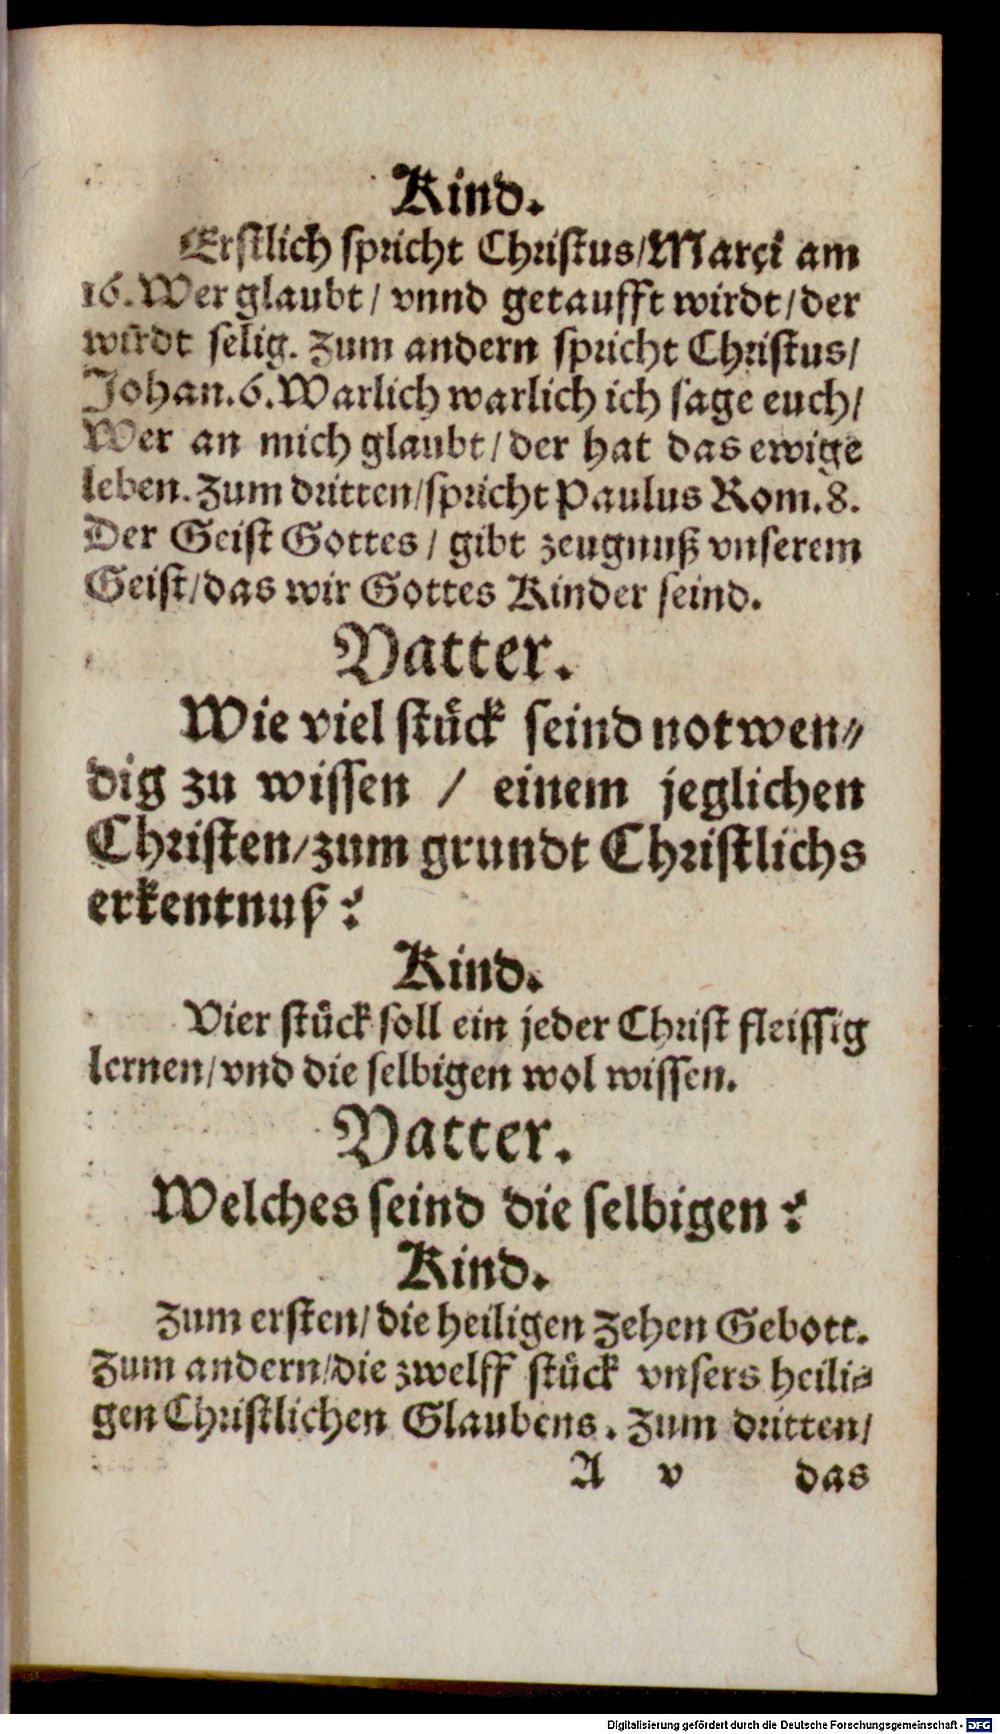 Kind.
Erstlich spricht Christus/Marci am
16. Wer glaubt/ vnnd getaufft wirdt/der
wirdt selig. Zum andern spricht Christus/
Johan.6. Warlich warlich ich sage euch/
Wer an mich glaubt/ der hat das ewige
leben. Zum dritten/spricht Paulus Rom.8.
Der Geist Gottes/ gibt zeugnuß vnserem
Geist/das wir Gottes Kinder seind.
Vatter.
Wie viel stück seind notwen-
dig zu wissen / einem jeglichen
Christen/zum grundt Christlichs
erkentnuß?
Kind.
Vier stück soll ein jeder Christ fleissig
lernen/vnd die selbigen wol wissen.
Vatter.
Welches seind die selbigen?
Kind.
Zum ersten/ die heiligen Zehen Gebott.
Zum andern/die zwelff stück vnsers heili-
gen Christlichen Glaubens. Zum dritten/
A v das
Digitalisierung gefördert durch die Deutsche Forschungsgemeinschaft - DFG